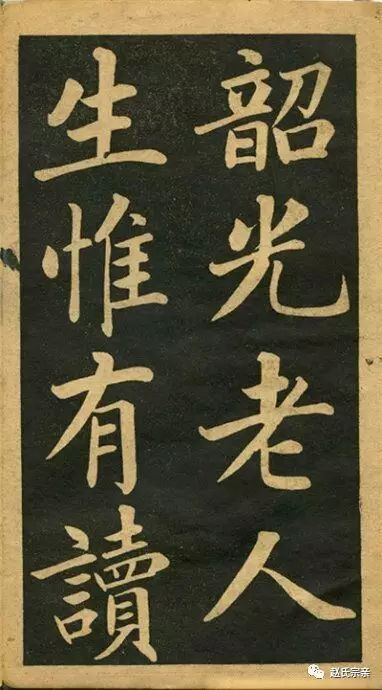 韶光老人
生惟有讀
赵氏宗亲